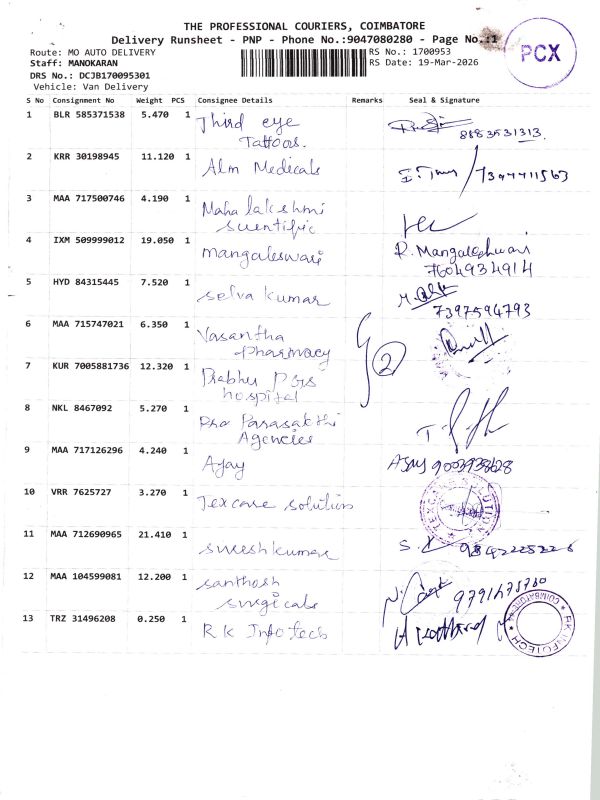 THE PROFESSIONAL COURIERS, COIMBATORE
Delivery Runsheet - PNP - Phone No.:9047080280 - Page No.:1
PCX
Route: MO AUTO DELIVERY
RS No.: 1700953
Staff: MANOKARAN
RS Date: 19-Mar-2026
DRS No.: DCJB170095301
Vehicle: Van Delivery
S No Consignment No Weight PCS Consignee Details Remarks Seal & Signature
1 BLR 585371538 5.470 1 Third eye
Tattoos.
8883531313.
2 KRR 30198945 11.120 1 Alm Medicals
3 MAA 717500746 4.190 1 Maha lakshmi
scientific
4 IXM 509999012 19.050 1 mangaleswari R. Mangaleshwari
7604934914
5 HYD 84315445 7.520 1 selva kumar
7397594793
6 MAA 715747021 6.350 1 Vasantha
pharmacy
2
7 KUR 7005881736 12.320 1 Prabhu PGS
hospital
8 NKL 8467092 5.270 1 Parasakthi
Agencies
9 MAA 717126296 4.240 1 Ajay AJAY 9003938628
10 VRR 7625727 3.270 1 Texcare solution
TEXCARE SOLUTION
11 MAA 712690965 21.410 1 sureshkumar
12 MAA 104599081 12.200 1 santhosh
surgicals
13 TRZ 31496208 0.250 1 RK Infotech
RK INFOTECH
COIMBATORE